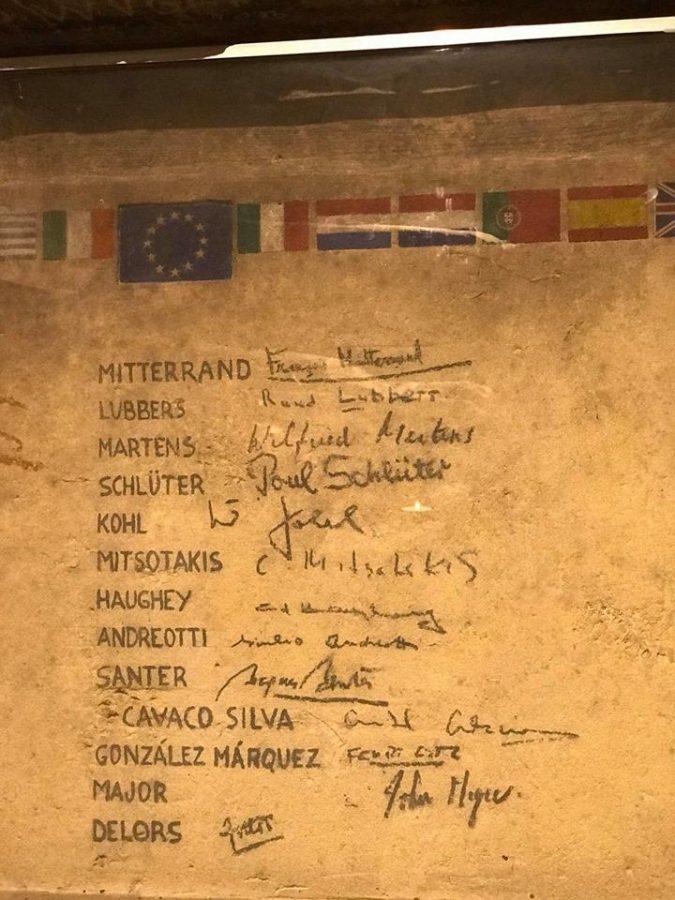 MITTERRAND François Mitterrand
LUBBERS Ruud Lubbers
MARTENS Wilfried Martens
SCHLÜTER Poul Schlüter
KOHL
MITSOTAKIS C Mitsotakis
HAUGHEY
ANDREOTTI Giulio Andreotti
SANTER Jacques Santer
CAVACO SILVA
GONZÁLEZ MÁRQUEZ
MAJOR John Major
DELORS